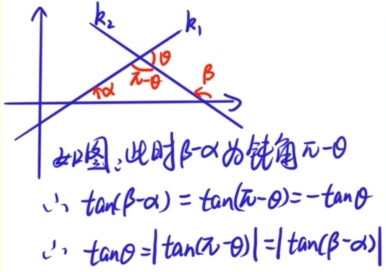 k₂
k₁
θ
π-θ
α
β
如图，此时β-α为钝角π-θ
∴ tan(β-α) = tan(π-θ) = -tanθ
∴ tanθ = |tan(π-θ)| = |tan(β-α)|